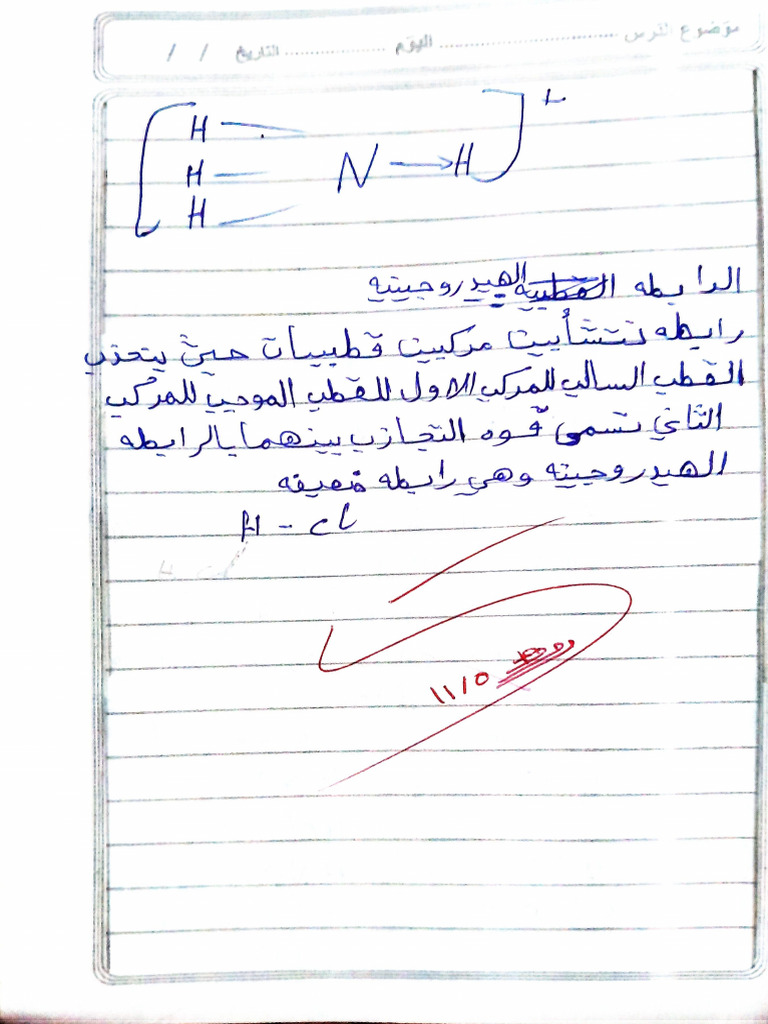 موضوع الدرس ........................ اليوم .................. التاريخ / /
H
H N → H +
H
الرابطه القطبية الهيدروجينيه
رابطه تنتشأبين مركبين قطبيان حين ينجذب
القطب السالب للمركب الاول للقطب الموجب للمركب
الثاني تسمى قوه التجازب بينهما بالرابطه
الهيدروجينيه وهي رابطه ضعيفه
H - cl
١١/٥